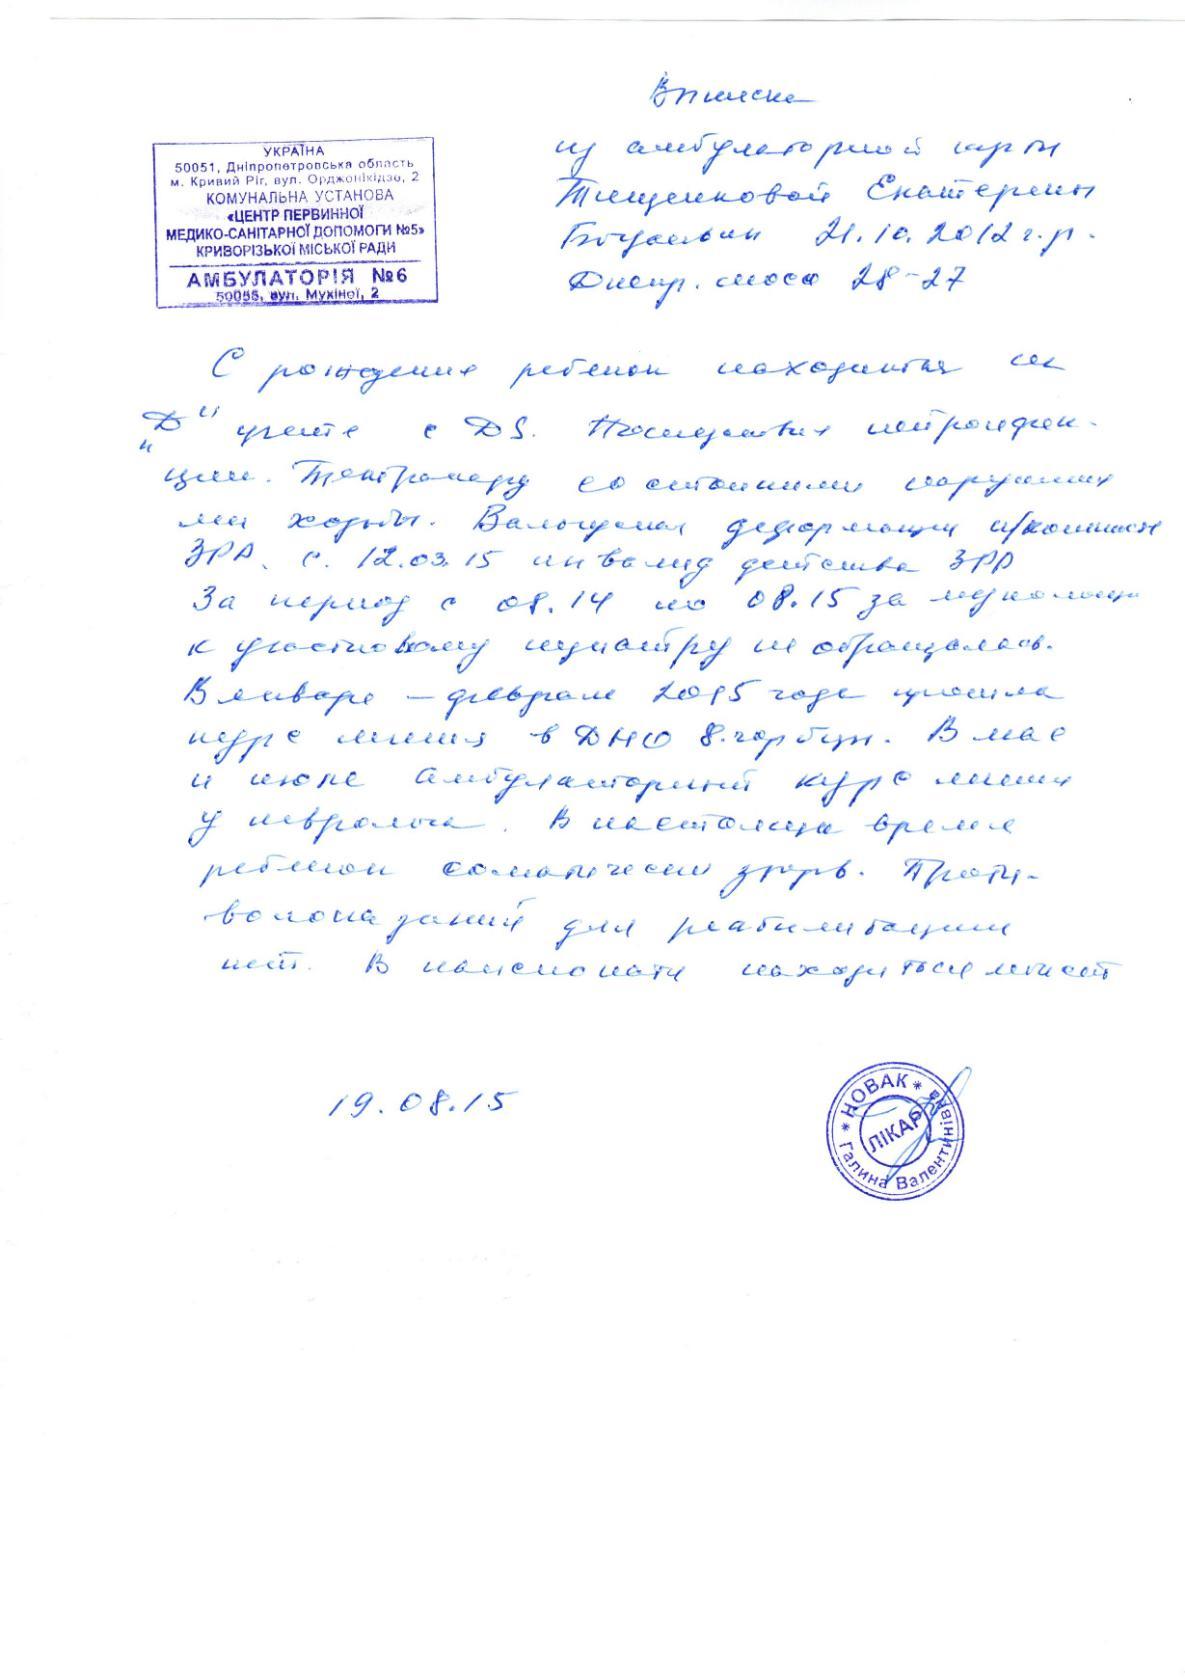 Выписка
УКРАЇНА
50051, Дніпропетровська область
м. Кривий Ріг, вул. Орджонікідзе, 2
КОМУНАЛЬНА УСТАНОВА
«ЦЕНТР ПЕРВИННОЇ
МЕДИКО-САНІТАРНОЇ ДОПОМОГИ №5»
КРИВОРІЗЬКОЇ МІСЬКОЇ РАДИ
АМБУЛАТОРІЯ №6
50055, вул. Мухіної, 2
из амбулаторной карты
Тищенковой Екатерины
21.10.2012 г.р.
Днепр. шоссе 28-27
С рождения ребенок находится на
"Д" учете с DS. Последствия нейроинфек-
ции. Тетрапарез со стойкими нарушения
ми ходьбы. Вальгусная деформация
ЗРР. с. 12.03.15 инвалид детства ЗРР
За период с 08.14 по 08.15 за медпомощью
к участковому педиатру не обращалась.
В январе - феврале 2015 года прошла
курс лечения в 8. горбун. В мае
и июле амбулаторный курс лечения
у невролога. В настоящее время
ребенок соматически здоров. Проти-
вопоказаний для реабилитации
нет. В пансионате находиться может
19.08.15
НОВАК
Галина Валентинівна
ЛІКАР